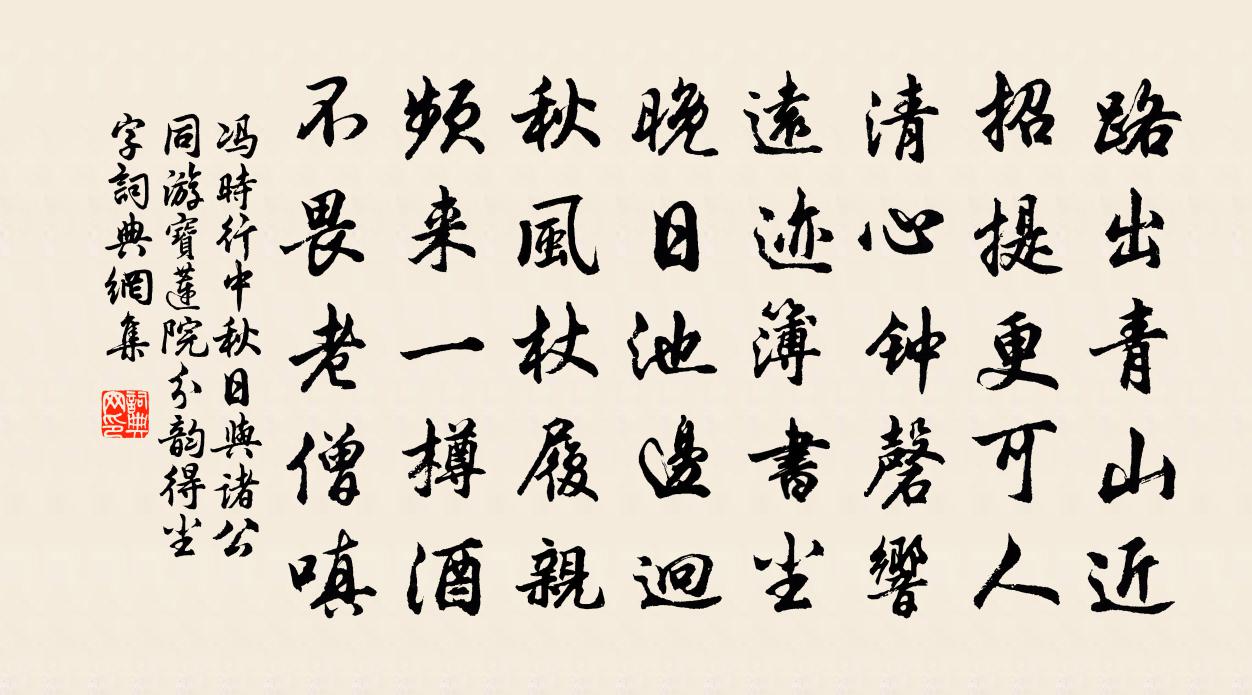 路出青山近
招提更可人
清心钟磬響
遠迹簿書尘
晚日池邊迥
秋風杖履親
頻来一樽酒
不畏老僧嗔
冯時行中秋日與诸公
同游寶蓮院分韵得尘
字詞典網集
詞典网印